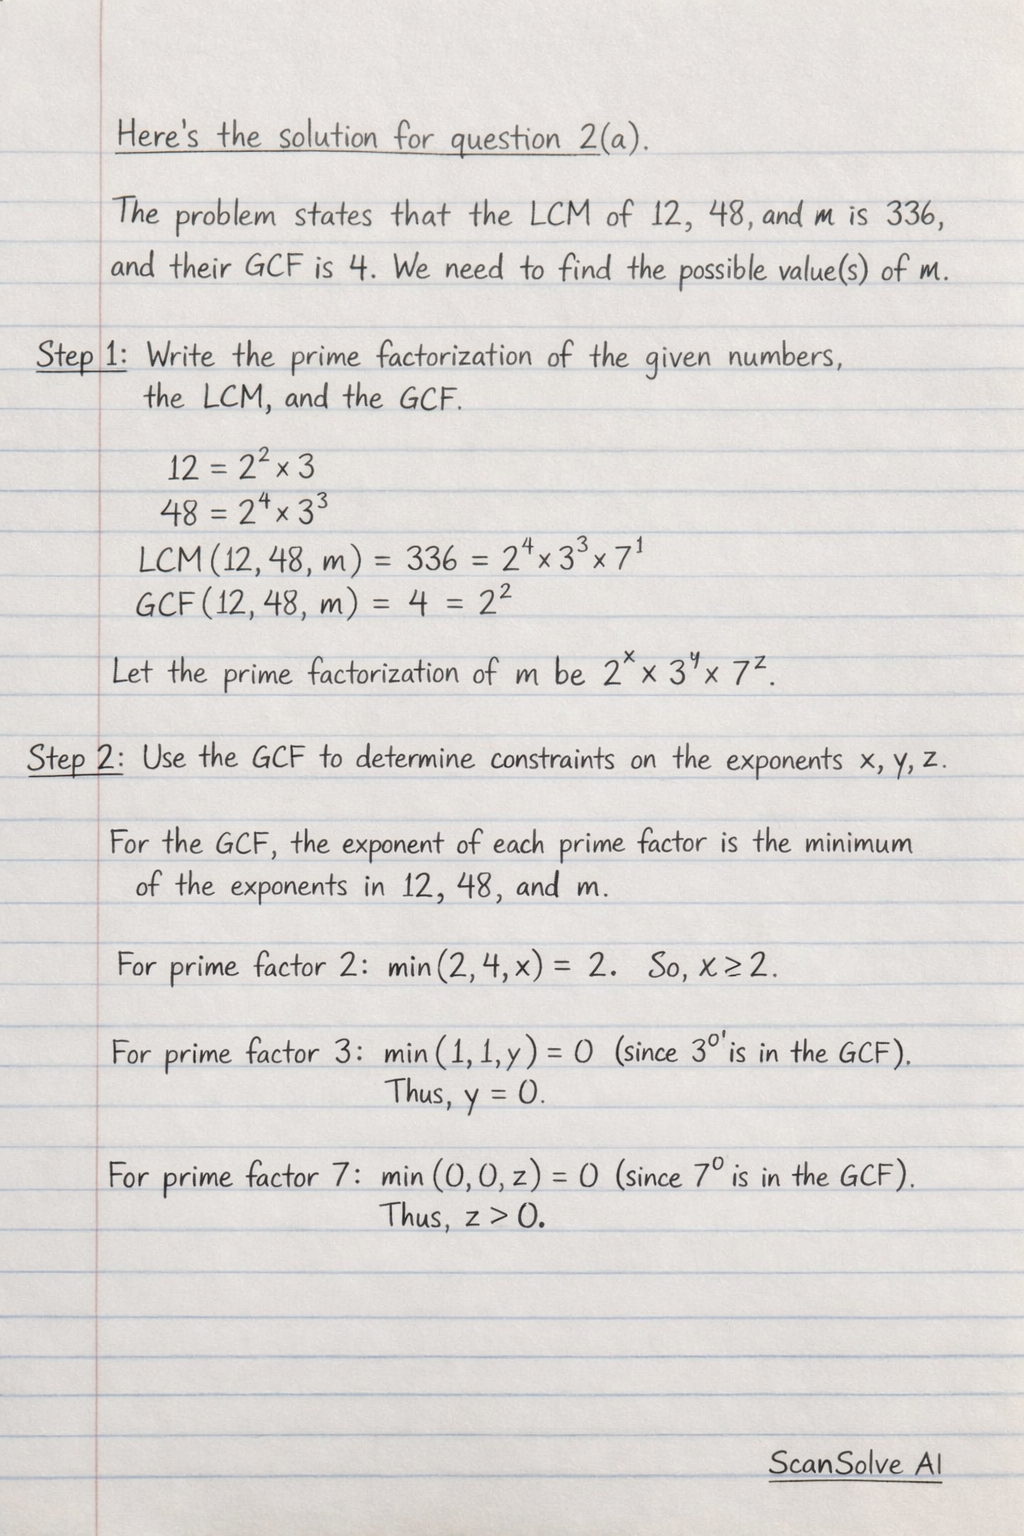 Here's the solution for question 2(a).
The problem states that the LCM of 12, 48, and m is 336,
and their GCF is 4. We need to find the possible value(s) of m.
Step 1: Write the prime factorization of the given numbers,
the LCM, and the GCF.
12 = 2² × 3
48 = 2⁴ × 3³
LCM (12, 48, m) = 336 = 2⁴ × 3³ × 7¹
GCF (12, 48, m) = 4 = 2²
Let the prime factorization of m be 2ˣ × 3ʸ × 7ᶻ.
Step 2: Use the GCF to determine constraints on the exponents x, y, z.
For the GCF, the exponent of each prime factor is the minimum
of the exponents in 12, 48, and m.
For prime factor 2: min (2, 4, x) = 2. So, x ≥ 2.
For prime factor 3: min (1, 1, y) = 0 (since 3⁰' is in the GCF).
Thus, y = 0.
For prime factor 7: min (0, 0, z) = 0 (since 7⁰ is in the GCF).
Thus, z > 0.
ScanSolve AI